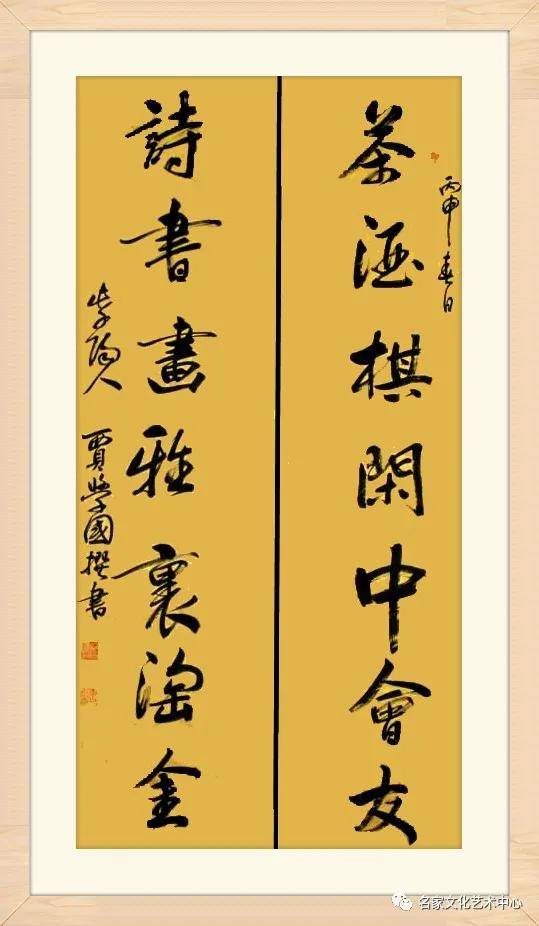 丙申春日
茶酒棋閑中會友
詩書畫雅裏淘金
陽人
賈學國撰書
名家文化艺术中心